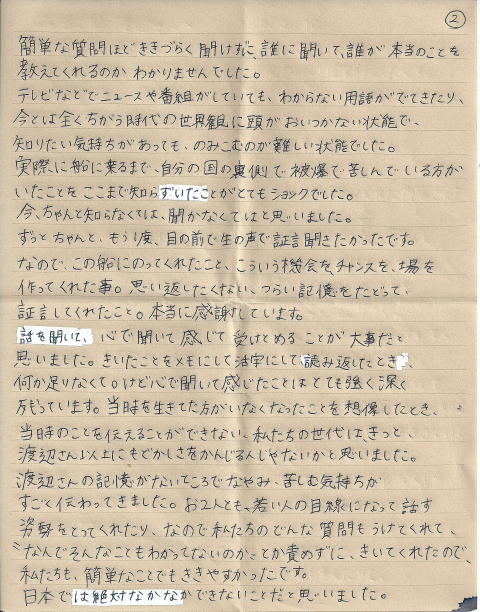 ②
簡単な質問ほどききづらく聞けずに、誰に聞いて、誰が本当のことを
教えてくれるのかわかりませんでした。
テレビなどでニュースや番組がしていても、わからない用語がでてきたり、
今とは全くちがう時代の世界観に頭がおいつかない状態で、
知りたい気持ちがあっても、のみこむのが難しい状態でした。
実際に船に乗るまで、自分の国の裏側で被爆で苦しんでいる方が
いたことをここまで知らずいたことがとてもショックでした。
今、ちゃんと知らなくては、聞かなくてはと思いました。
ずっとちゃんと、もう1度、目の前で生の声で証言聞きたかったです。
なので、この船にのってくれたこと、こういう機会を、チャンスを、場を
作ってくれた事。思い返したくない、つらい記憶をたどって、
証言してくれたこと。本当に感謝しています。
話を聞いて、心で聞いて感じて受けとめることが大事だと
思いました。きいたことをメモにして活字にして読み返したとき、
何か足りなくて。けど心で聞いて感じたことはとても強く深く
残っています。当時を生きてた方がいなくなったことを想像したとき、
当時のことを伝えることができない、私たちの世代は、きっと、
渡辺さん以上にもどかしさをかんじるんじゃないかと思いました。
渡辺さんの記憶がないところでなやみ、苦しむ気持ちが
すごく伝わってきました。お2人とも、若い人の目線になって話す
姿勢をとってくれたり、なので私たちのどんな質問もうけてくれて、
なんでそんなこともわかってないのか、とか責めずに、きいてくれたので、
私たちも、簡単なことでもききやすかったです。
日本では絶対なかなかできないことだと思いました。